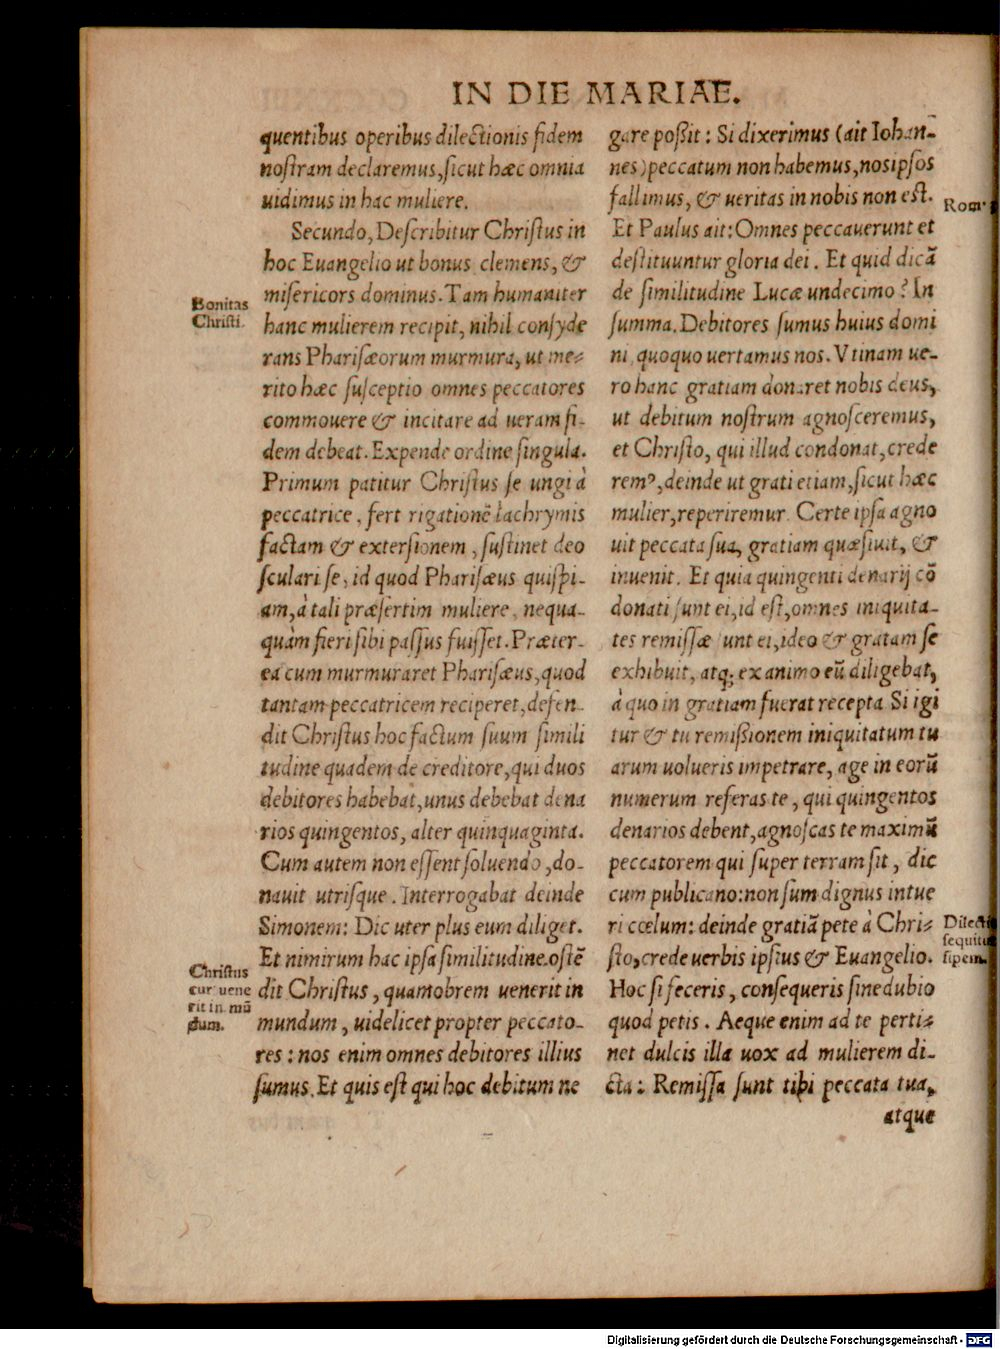 IN DIE MARIAE.
quentibus operibus dilectionis fidem
nostram declaremus, sicut hæc omnia
uidimus in hac muliere.
Secundo, Describitur Christus in
hoc Euangelio ut bonus clemens, &
misericors dominus. Tam humaniter
hanc mulierem recipit, nihil consyde
rans Pharisæorum murmura, ut me-
rito hæc susceptio omnes peccatores
commouere & incitare ad ueram fi-
dem debeat. Expende ordine singula.
Primum patitur Christus se ungi à
peccatrice, fert rigationē lachrymis
factam & extersionem, sustinet deo
sculari se, id quod Pharisæus quispi-
am, à tali præsertim muliere, nequa-
quàm fieri sibi passus fuisset. Præter-
ea cum murmuraret Pharisæus, quod
tantam peccatricem reciperet, defen-
dit Christus hoc factum suum simili
tudine quadem de creditore, qui duos
debitores habebat, unus debebat dena
rios quingentos, alter quinquaginta.
Cum autem non essent soluendo, do-
nauit utrisque. Interrogabat deinde
Simonem: Dic uter plus eum diliget.
Et nimirum hac ipsa similitudine ostē
dit Christus, quamobrem uenerit in
mundum, uidelicet propter peccato-
res: nos enim omnes debitores illius
sumus. Et quis est qui hoc debitum ne
Bonitas
Christi.
Christus
cur uene
rit in mū
dum.
gare poßit: Si dixerimus (ait Iohan-
nes) peccatum non habemus, nosipsos
fallimus, & ueritas in nobis non est.
Et Paulus ait: Omnes peccauerunt et
destituuntur gloria dei. Et quid dicā
de similitudine Lucæ undecimo? In
summa. Debitores sumus huius domi
ni, quoquo uertamus nos. Vtinam ue-
ro hanc gratiam donaret nobis deus,
ut debitum nostrum agnosceremus,
et Christo, qui illud condonat, crede
remꝰ, deinde ut grati etiam, sicut hæc
mulier, reperiremur. Certe ipsa agno
uit peccata sua, gratiam quæsiuit, &
inuenit. Et quia quingenti denarij cō
donati sunt ei, id est, omnes iniquita-
tes remissæ sunt ei, ideo & gratam se
exhibuit, atq; ex animo eū diligebat,
à quo in gratiam fuerat recepta. Si igi
tur & tu remißionem iniquitatum tu
arum uolueris impetrare, age in eorū
numerum referas te, qui quingentos
denarios debent, agnoscas te maximū
peccatorem qui super terram sit, dic
cum publicano: non sum dignus intue
ri cœlum: deinde gratiā pete à Chri-
sto, crede uerbis ipsius & Euangelio.
Hoc si feceris, consequeris sine dubio
quod petis. Aeque enim ad te perti-
net dulcis illa uox ad mulierem di-
cta: Remissa sunt tibi peccata tua,
atque
Rom.
sequitur
fidem.
Digitalisierung gefördert durch die Deutsche Forschungsgemeinschaft - DFG